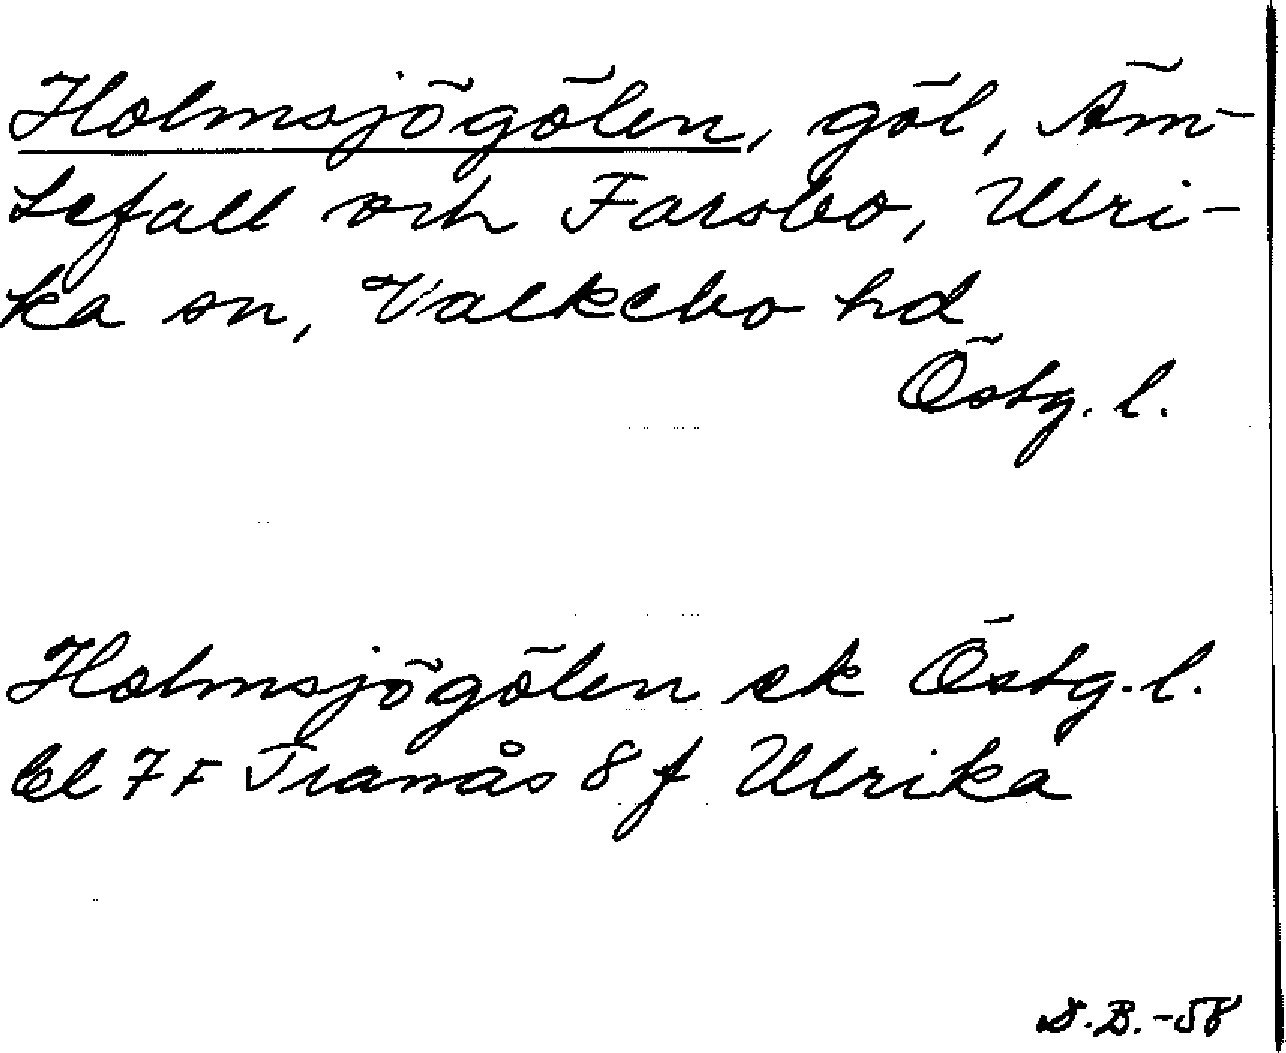 Holmsjögölen, göl, Äm-
tefall och Farsbo, Ulri-
ka sn, Valkebo hd
Östg. l.
Holmsjögölen ek Östg. l.
bl 7 F Tranås 8 f Ulrika
S.B. -58